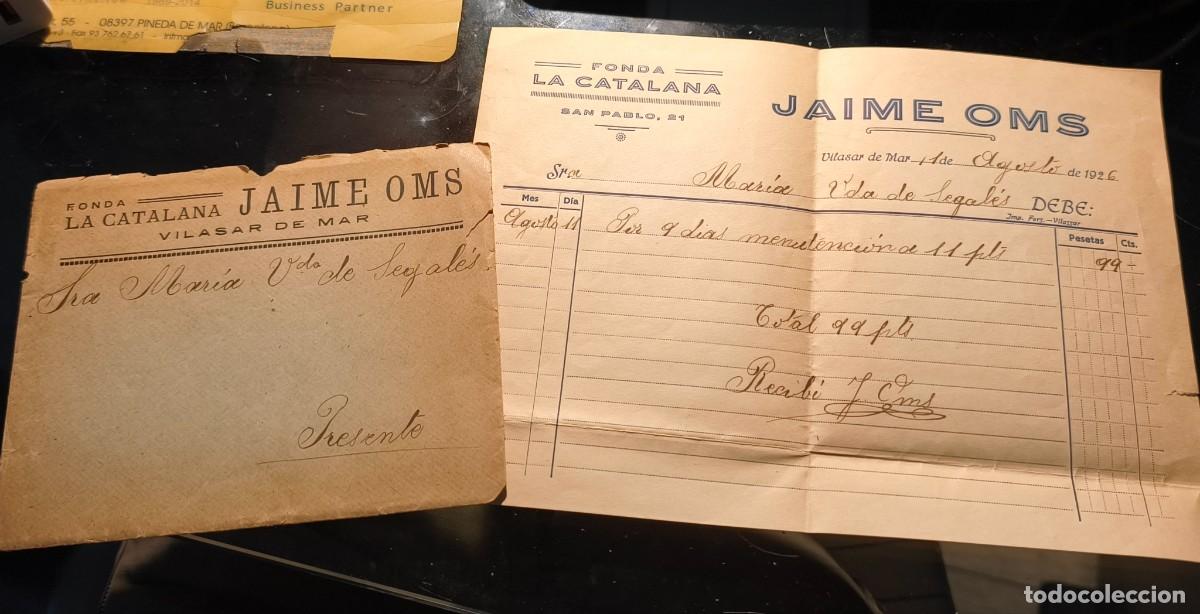 Business Partner
55 - 08397 PINEDA DE MAR
Fax 93 762 67 61
FONDA
LA CATALANA
JAIME OMS
VILASAR DE MAR
Sra María Vda de Segalés
Presente
FONDA
LA CATALANA
SAN PABLO, 21
JAIME OMS
Vilasar de Mar 11 de Agosto de 1926
Sra María Vda de Segalés DEBE:
Imp. Fort.-Vilasar
Mes Día Pesetas Cts.
Agosto 11 Por 9 dias menutención a 11 pts 99 -
Total 99 pts.
Recibí J Oms
todocoleccion